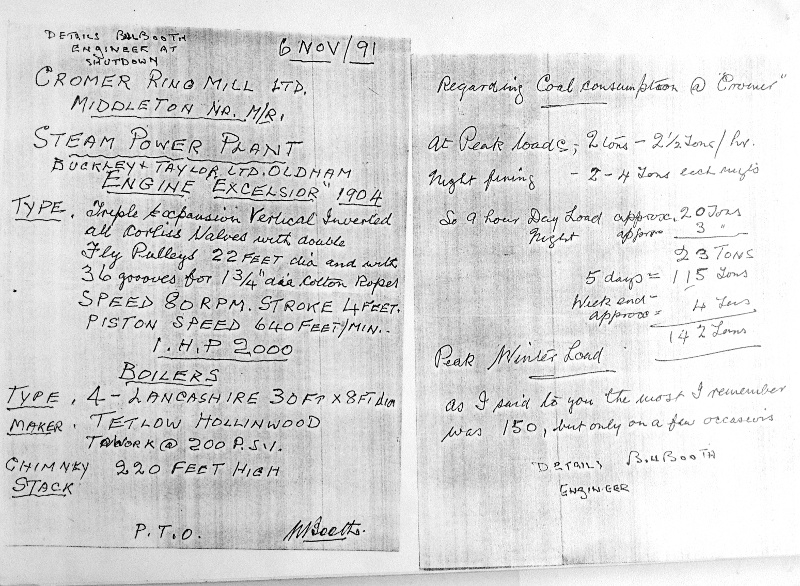 DETAILS B.H. BOOTH
ENGINEER AT
SHUTDOWN
6 NOV/91
CROMER RING MILL LTD.
MIDDLETON NR. M/R.
STEAM POWER PLANT
BUCKLEY & TAYLOR LTD. OLDHAM
ENGINE "EXCELSIOR" 1904
TYPE. Triple Expansion Vertical Inverted
all Corliss Valves with double
Fly Pulleys 22 FEET dia and with
36 grooves for 1 3/4" dia Cotton Ropes
SPEED 80 RPM. STROKE 4 FEET.
PISTON SPEED 640 FEET/MIN..
I.H.P 2000
BOILERS
TYPE. 4 - LANCASHIRE 30 FT x 8 FT dia
MAKER. TETLOW HOLLINWOOD
TO WORK @ 200 P.S.I.
CHIMNEY 220 FEET HIGH
STACK
P.T.O.
Regarding Coal consumption @ "Cromer"
At Peak loads; 2 tons - 2 1/2 Tons/hr.
Night firing - 2 - 4 Tons each night
So 9 hour Day Load approx. 20 Tons
Night approx 3 "
23 TONS
5 days = 115 Tons
Week end - 4 Tons
approx =
142 Tons
Peak Winter Load
As I said to you the most I remember
was 150, but only on a few occasions
DETAILS B.H BOOTH
ENGINEER